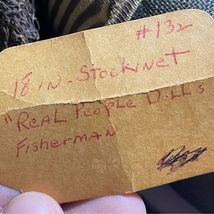 #132
18 in - Stockinet
"Real People Dolls
Fisherman